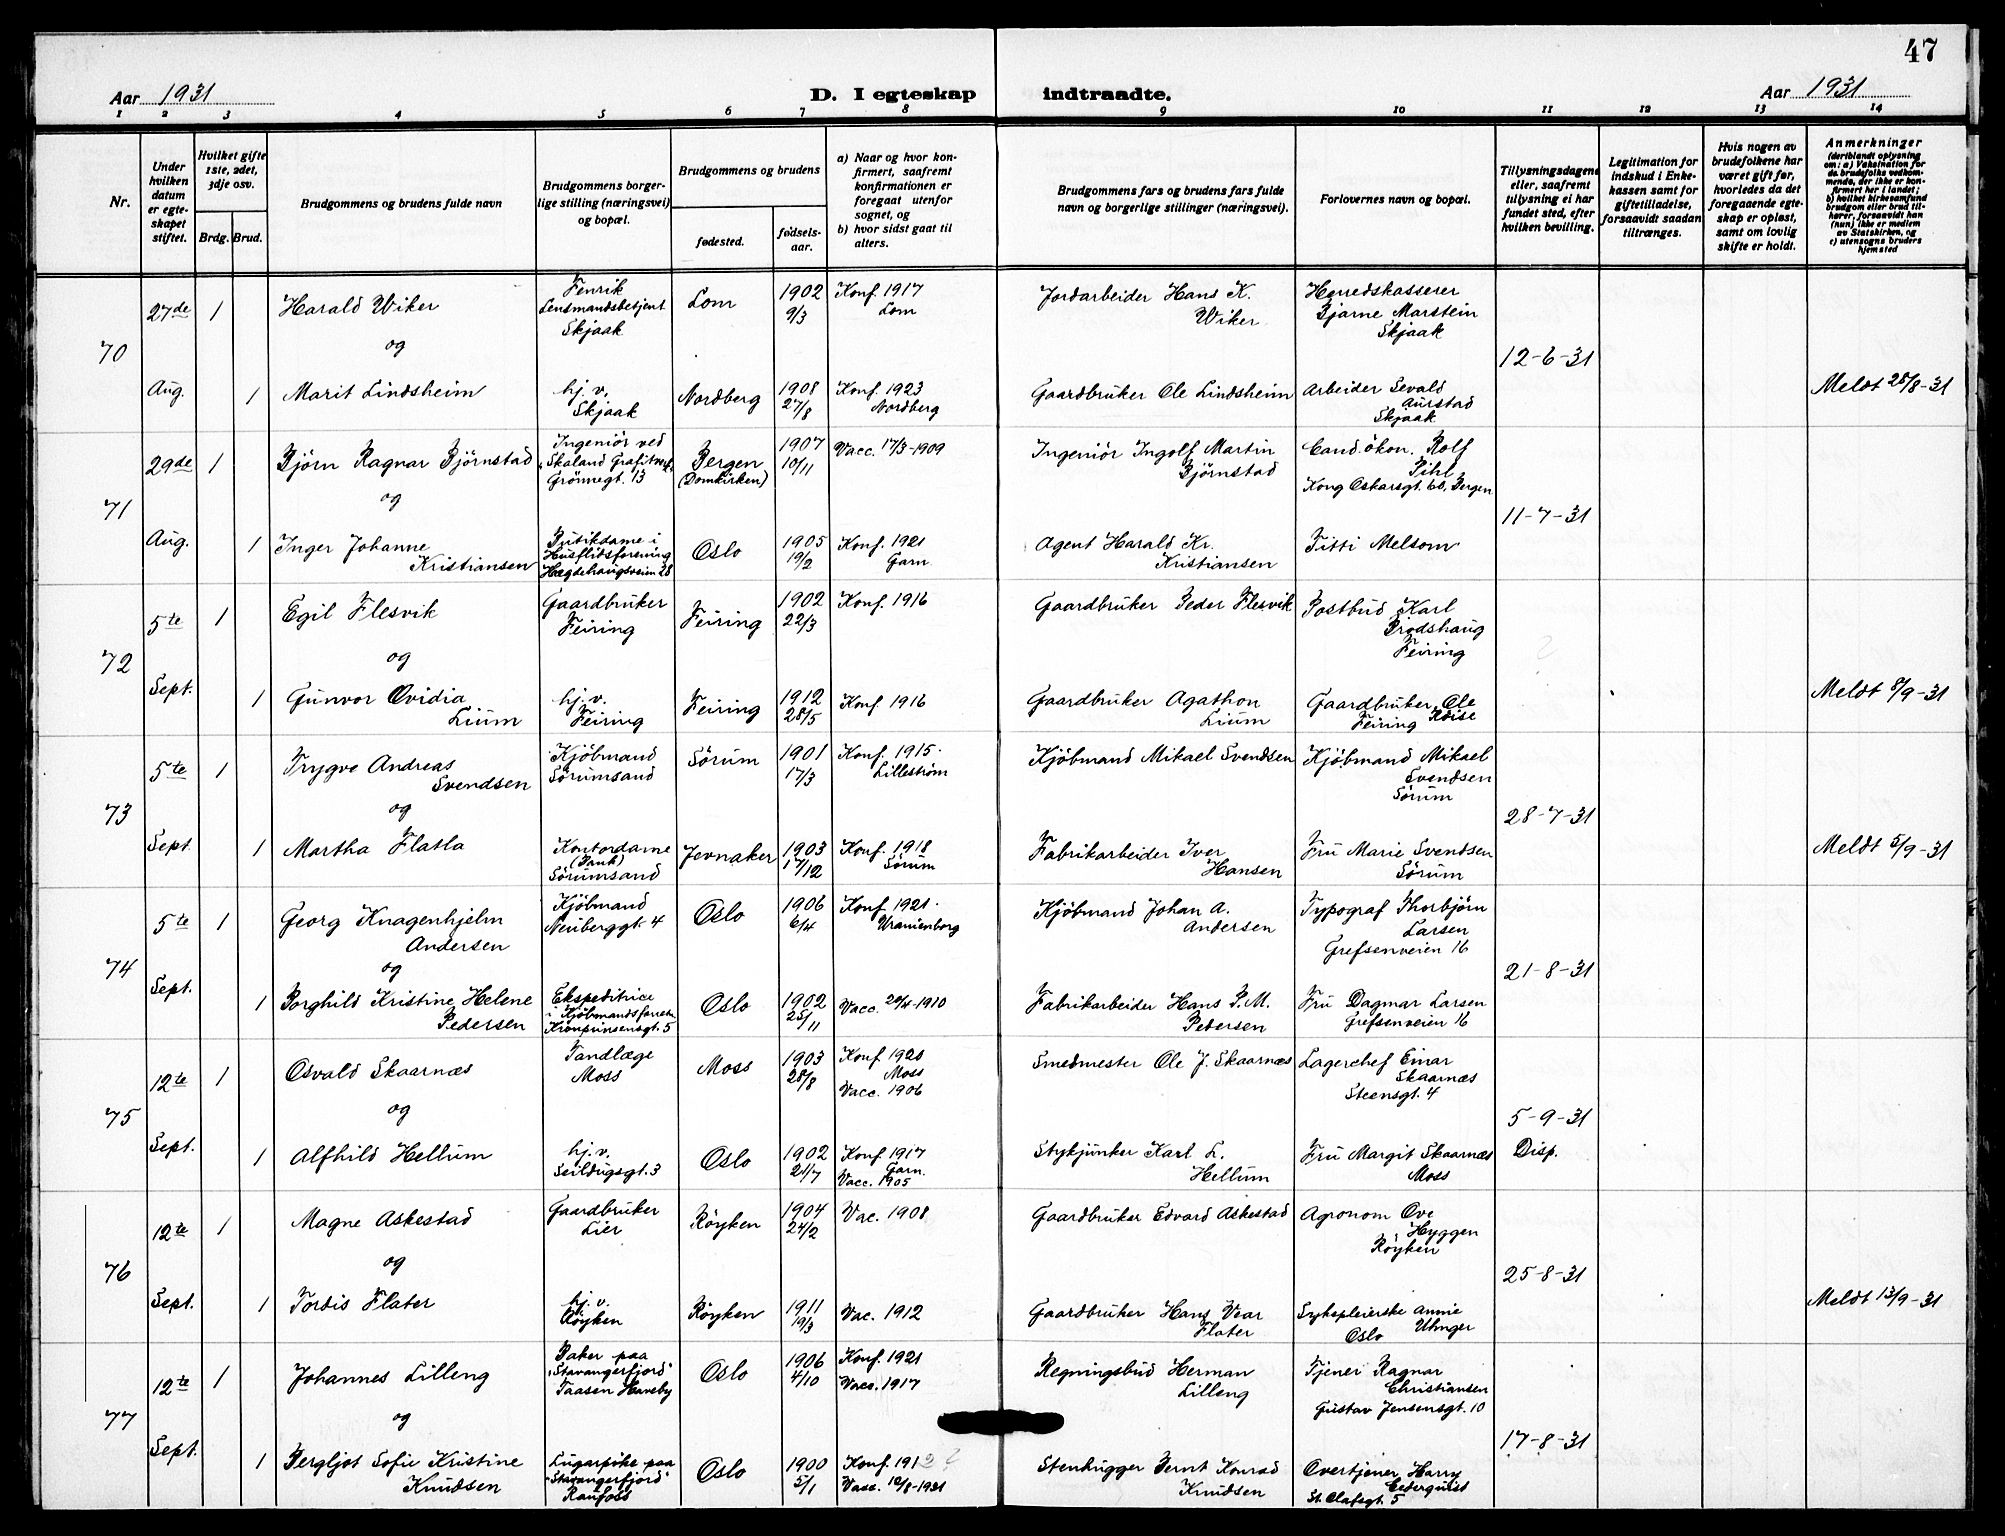 47
Aar 1931
D. I egteskap indtraadte.
Aar 1931
1 2 3 4 5 6 7 8 9 10 11 12 13 14
Nr.
Under hvilken datum er egteskapet stiftet.
Hvilket gifte 1ste, 2det, 3dje osv.
Brdg. Brud.
Brudgommens og brudens fulde navn
Brudgommens borgerlige stilling (næringsvei) og bopæl.
Brudgommens og brudens
fødested.
fødselsaar.
a) Naar og hvor konfirmert, saafremt konfirmationen er foregaat utenfor sognet, og
b) hvor sidst gaat til alters.
Brudgommens fars og brudens fars fulde navn og borgerlige stillinger (næringsvei).
Forlovernes navn og bopæl.
Tillysningsdagene eller, saafremt tillysning ei har fundet sted, efter hvilken bevilling.
Legitimation for indskud i Enkekassen samt for giftetilladelse, forsaavidt saadan tiltrænges.
Hvis nogen av brudefolkene har været gift før, hvorledes da det foregaaende egteskap er opløst, samt om lovlig skifte er holdt.
Anmerkninger
(deriblandt oplysning om: a) Vaksination for de brudefolks vedkommende, der ikke er konfirmert her i landet; b) hvilket kirkesamfund brudgom eller brud tilhører, forsaavidt han (hun) ikke er medlem av Statskirken, og c) utensogns bruders hjemsted
70
27de 1 Harald Wiker Fenrik Lensmandsbetjent Skjaak Lom 1902 9/3 Konf. 1917 Lom Jordarbeider Hans K. Wiker Herredskasserer Bjarne Marstein Skjaak
og
12-6-31
Aug. 1 Marit Lindsheim hj. v. Skjaak Nordberg 1908 27/8 Konf. 1923 Nordberg Gaardbruker Ole Lindsheim Arbeider Sevald Aurstad Skjaak Meldt 28/8-31
71
29de 1 Björn Ragnar Björnstad Ingeniör ved Skaland Grafitverk, Grönnegt. 13 Bergen (Domkirken) 1907 10/11 Vacc. 17/3-1909 Ingeniör Ingolf Martin Björnstad Cand. ökon. Rolf Pihl Kong Oskarsgt. 60, Bergen
og
11-7-31
Aug. 1 Inger Johanne Kristiansen Butikdame i Husflidsforening Hegdehaugsveien 28 Oslo 1905 19/2 Konf. 1921 Garn. Agent Harald Kr. Kristiansen Titti Melsom
72
5te 1 Egil Flesvik Gaardbruker Feiring Feiring 1902 22/3 Konf. 1916 Gaardbruker Peder Flesvik Postbud Karl Brodshaug Feiring
og
Sept. 1 Gunvor Ovidia Lium hj. v. Feiring Feiring 1912 28/5 Konf. 1916 Gaardbruker Agathon Lium Gaardbruker, Ole Röise Feiring Meldt 8/9-31
73
5te 1 Trygve Andreas Svendsen Kjöbmand Sörumsand Sörum 1901 17/3 Konf. 1915 Lilleström Kjöbmand Mikael Svendsen Kjöbmand Mikael Svendsen Sörum
og
28-7-31
Sept. 1 Martha Flatla Kontordame (Bank) Sörumsand Jevnaker 1903 17/12 Konf. 1918 Sörum Fabrikarbeider Iver Hansen Fru Marie Svendsen Sörum Meldt 5/9-31
74
5te 1 Georg Knagenhjelm Andersen Kjöbmand Neuberggt. 4 Oslo 1906 6/4 Konf. 1921 Uranienborg Kjöbmand Johan A. Andersen Typograf Thorbjörn Larsen Grefsenveien 16
og
21-8-31
Sept. 1 Borghild Kristine Helene Pedersen Ekspeditrice i Kjöbmandsforretn. Kronprinsensgt. 5 Oslo 1902 25/11 Vacc. 29/4-1910 Fabrikarbeider Hans P. M. Pedersen Fru Dagmar Larsen Grefsenveien 16
75
12te 1 Osvald Skaarnæs Tandlæge Moss Moss 1903 28/8 Konf 1920 Moss Vacc. 1906 Smedmester Ole J. Skaarnæs Lagerchef Einar Skaarnæs Steensgt. 4
og
5-9-31
Sept. 1 Alfhild Hellum hj. v. Seildugsgt. 3 Oslo 1902 21/7 Konf 1917 Garn. Vacc. 1905 Stykjunker Karl L. Hellum Fru Margit Skaarnæs Moss Disp.
76
12te 1 Magne Askestad Gaardbruker Lier Röyken 1904 24/2 Vac. 1908 Gaardbruker Edvard Askestad Agronom Ove Hyggen Röyken
og
25-8-31
Sept. 1 Tordis Flater hj. v. Röyken Röyken 1911 19/3 Vac. 1912 Gaardbruker Hans Flater Sykepleierske Annie Oslo Meldt 13/9-31
77
12te 1 Johannes Lilleng Baker paa "Stavangerfjord" Taasen Haveby Oslo 1906 4/10 Konf. 1921 Vacc. 1917 Regningsbud Herman Lilleng Tjener Ragnar Christiansen Gustav Jensensgt. 10
og
17-8-31
Sept. 1 Bergljot Sofie Kristine Knudsen Lugarpike paa "Stavangerfjord" Raufoss Oslo 1900 5/1 Konf. 191 ? Vacc. 10/8-1931 Stenhugger Bernt Konrad Knudsen Overtjener Harry Cederquist St. Olafsgt. 5